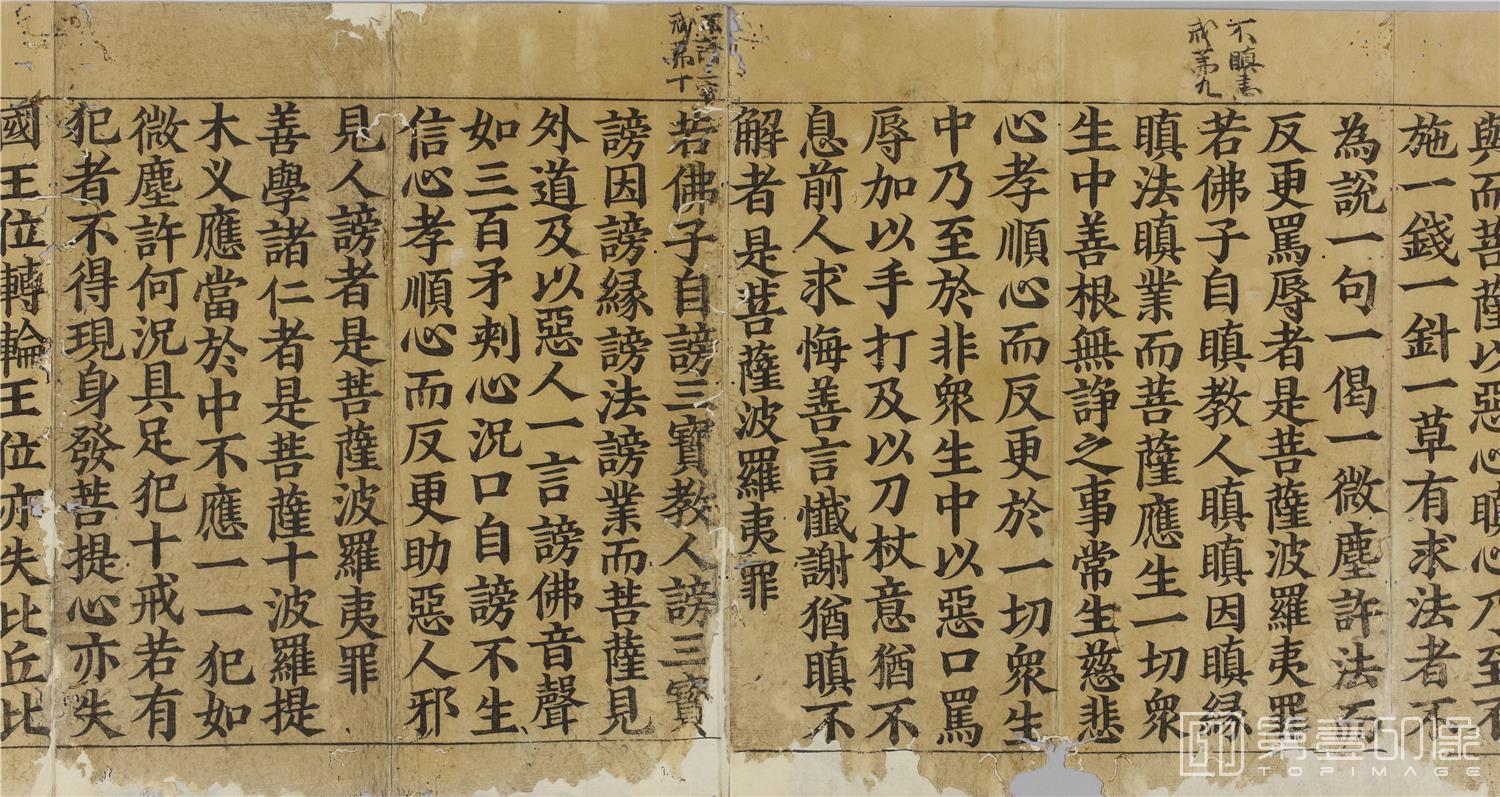 與而菩薩以惡心瞋心乃至不
施一錢一針一草有求法者不
為說一句一偈一微塵許法而
反更罵辱者是菩薩波羅夷罪
不瞋
戒第九
若佛子自瞋教人瞋瞋因瞋緣
瞋法瞋業而菩薩應生一切眾
生中善根無諍之事常生慈悲
心孝順心而反更於一切眾生
中乃至於非眾生中以惡口罵
辱加以手打及以刀杖意猶不
息前人求悔善言懺謝猶瞋不
解者是菩薩波羅夷罪
戒第十
若佛子自謗三寶教人謗三寶
謗因謗緣謗法謗業而菩薩見
外道及以惡人一言謗佛音聲
如三百矛刺心況口自謗不生
信心孝順心而反更助惡人邪
見人謗者是菩薩波羅夷罪
善學諸仁者是菩薩十波羅提
木义應當於中不應一一犯如
微塵許何況具足犯十戒若有
犯者不得現身發菩提心亦失
國王位轉輪王位亦失比丘比
第壹印象
TOPIMAGE